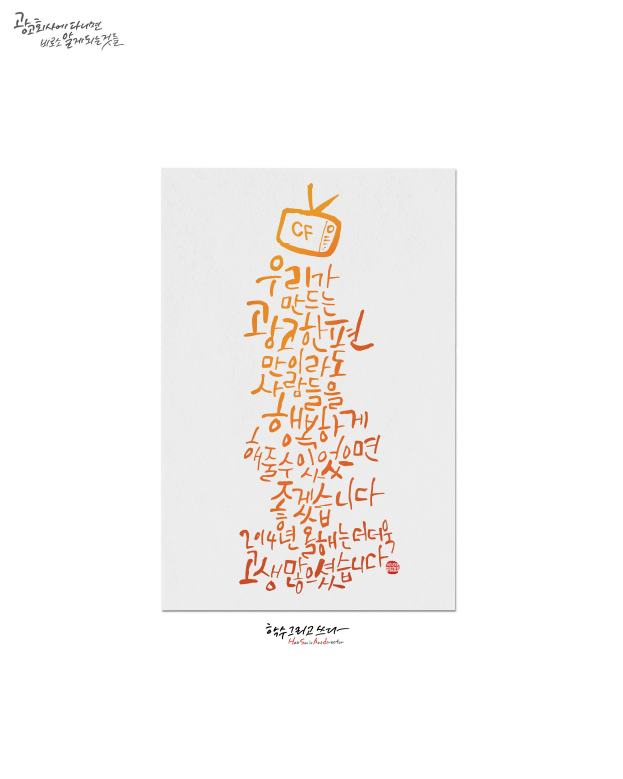 광고회사에 다니면
비로소 알게 되는 것들
CF
우리가
만드는
광고 한 편
만이라도
사람들을
행복하게
해줄 수 있었으면
좋겠습니다
2014년 올해는 더더욱
고생 많으셨습니다
학수 그리고 쓰다
HakSu is Art director